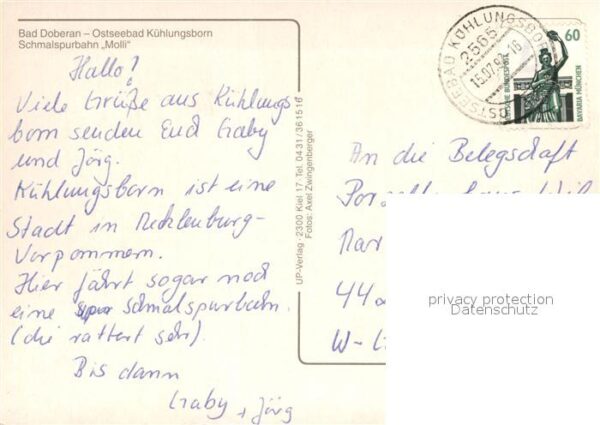 Bad Doberan – Ostseebad Kühlungsborn
Schmalspurbahn „Molli"
Hallo!
Viele Grüße aus Kühlungs
born senden Euch Gaby
und Jörg.
Kühlungsborn ist eine
Stadt in Mecklenburg-
Vorpommern.
Hier fährt sogar noch
eine Schmalspurbahn.
(die rattert sehr).
Bis dann
Gaby + Jörg
UP-Verlag · 2300 Kiel 17 · Tel. 0431/361516
Fotos: Axel Zwingenberger
OSTSEEBAD KÜHLUNGSBORN
2565
60
DEUTSCHE BUNDESPOST
BAVARIA MÜNCHEN
An die Belegschaft
44
W-
privacy protection
Datenschutz